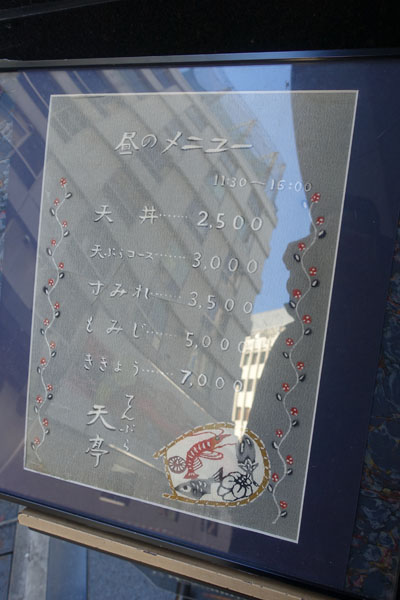 昼のメニュー
11:30—15:00
天丼……2,500
天ぷらコース……3,000
すみれ……3,500
もみじ……5,000
ききょう……7,000
てんぷら
天亭